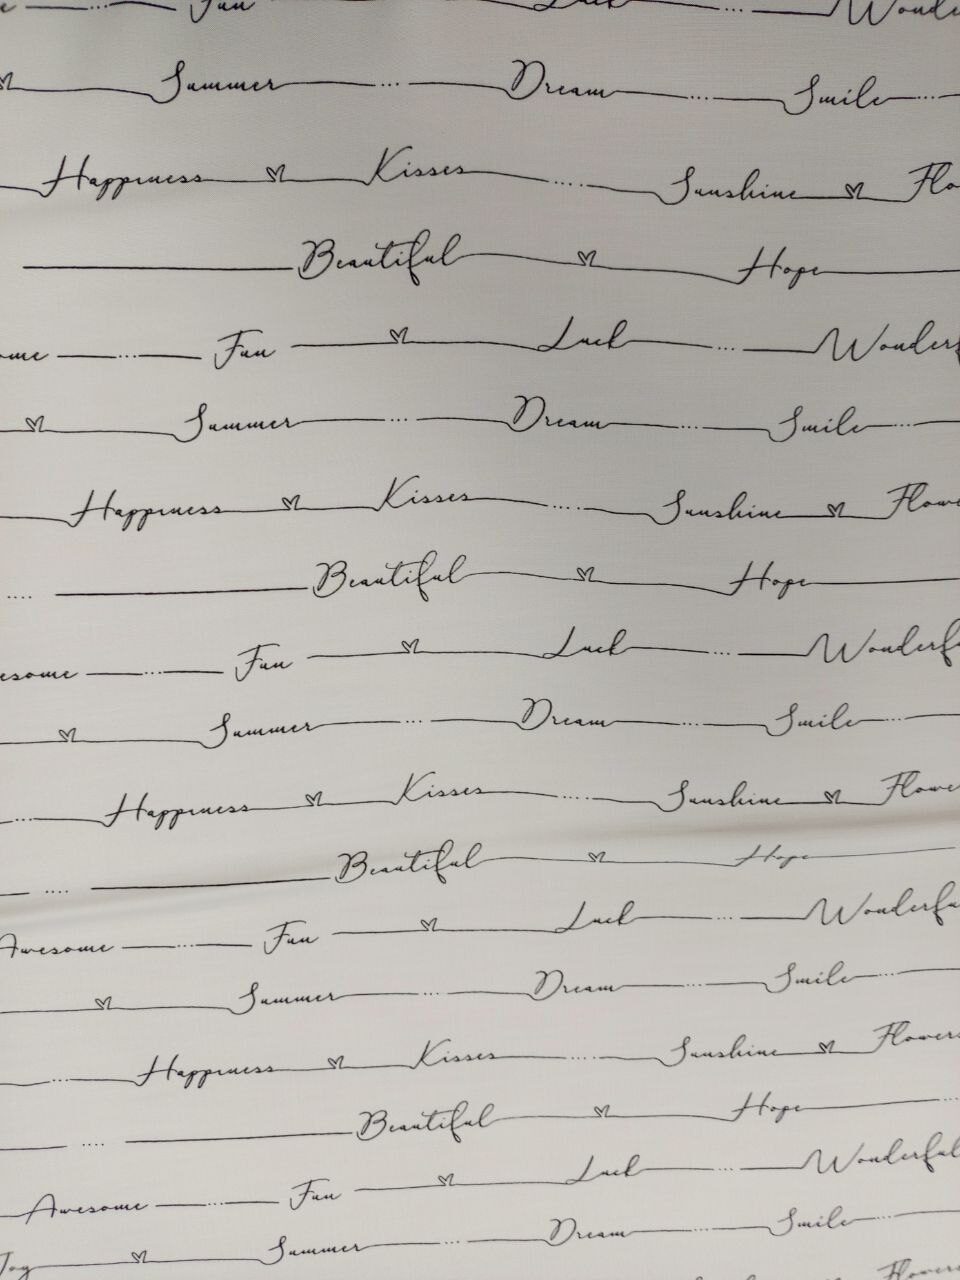 Fun Luck ... Wonderf
Summer ... Dream ... Smile ...
Happiness Kisses .... Sunshine Flo
Beautiful Hope
ome ... Fun Luck ... Wonderf
Summer ... Dream ... Smile ...
Happiness Kisses .... Sunshine Flowe
.... Beautiful Hope
esome ... Fun Luck ... Wonderf
Summer ... Dream ... Smile ...
... Happiness Kisses .... Sunshine Flower
.... Beautiful Hope
Awesome ... Fun Luck ... Wonderfu
Summer ... Dream ... Smile ...
... Happiness Kisses .... Sunshine Flowers
.... Beautiful Hope ...
Awesome ... Fun Luck ... Wonderful
Joy Summer ... Dream ... Smile ...
Flowers